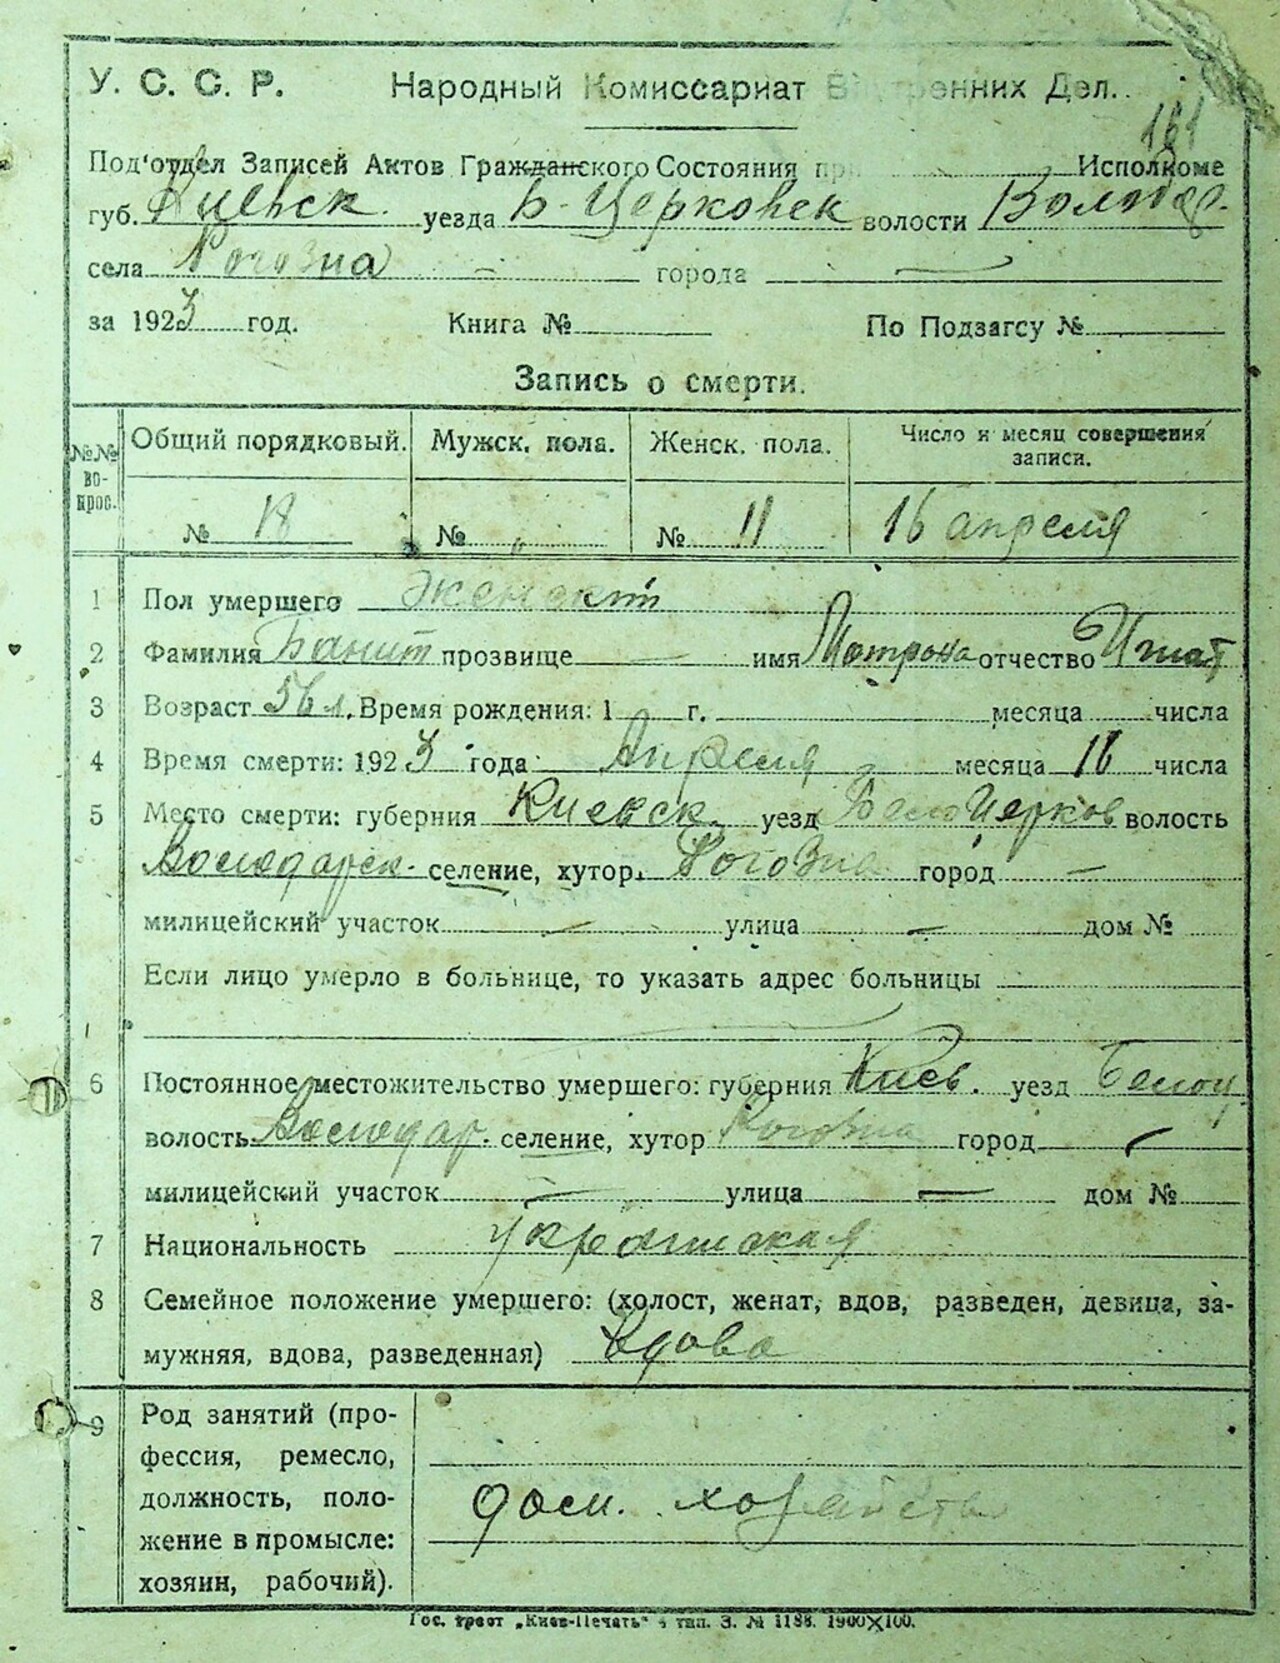 У. С. С. Р. Народный Комиссариат Внутренних Дел.
161
Под'отдел Записей Актов Гражданского Состояния при Исполкоме
губ. Киевск. уезда Б-Церковск волости Володар.
села Рогозна — города —
за 1923 год. Книга № По Подзагсу №
Запись о смерти.
№№ вопрос. Общий порядковый. Мужск. пола. Женск. пола. Число и месяц совершения записи.
№ 18 № „ № 11 16 апреля
1 Пол умершего женскiй
2 Фамилия прозвище — имя Матрона отчество Игнат
3 Возраст 56 л. Время рождения: 1 г. месяца числа
4 Время смерти: 1923 года Апреля месяца 16 числа
5 Место смерти: губерния Киевск. уезд Белоцерков волость
Володарск. селение, хутор. Рогозна город —
милицейский участок — улица — дом №
Если лицо умерло в больнице, то указать адрес больницы
6 Постоянное местожительство умершего: губерния Киев. уезд Белоц
волость Володар. селение, хутор Рогозна город —
милицейский участок — улица — дом №
7 Национальность
8 Семейное положение умершего: (холост, женат, вдов, разведен, девица, за-
мужняя, вдова, разведенная) Вдова
9 Род занятий (про-
фессия, ремесло,
должность, поло-
жение в промысле:
хозяин, рабочий).
дом. хозяйств
Гос. трест „Киев-Печать" 4 тип. З. № 1188. 1900X100.